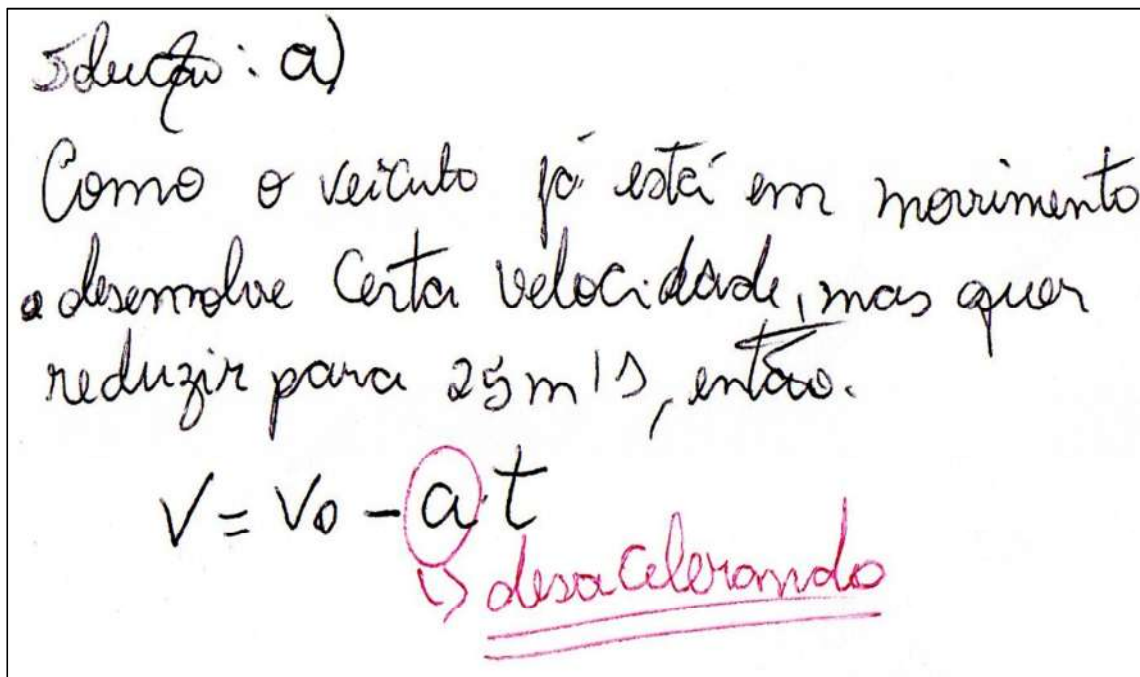 Solução: a)
Como o veículo já está em movimento
e desenvolve certa velocidade, mas quer
reduzir para 25 m/s, então.
V = V0 - a.t
↳ desacelerando